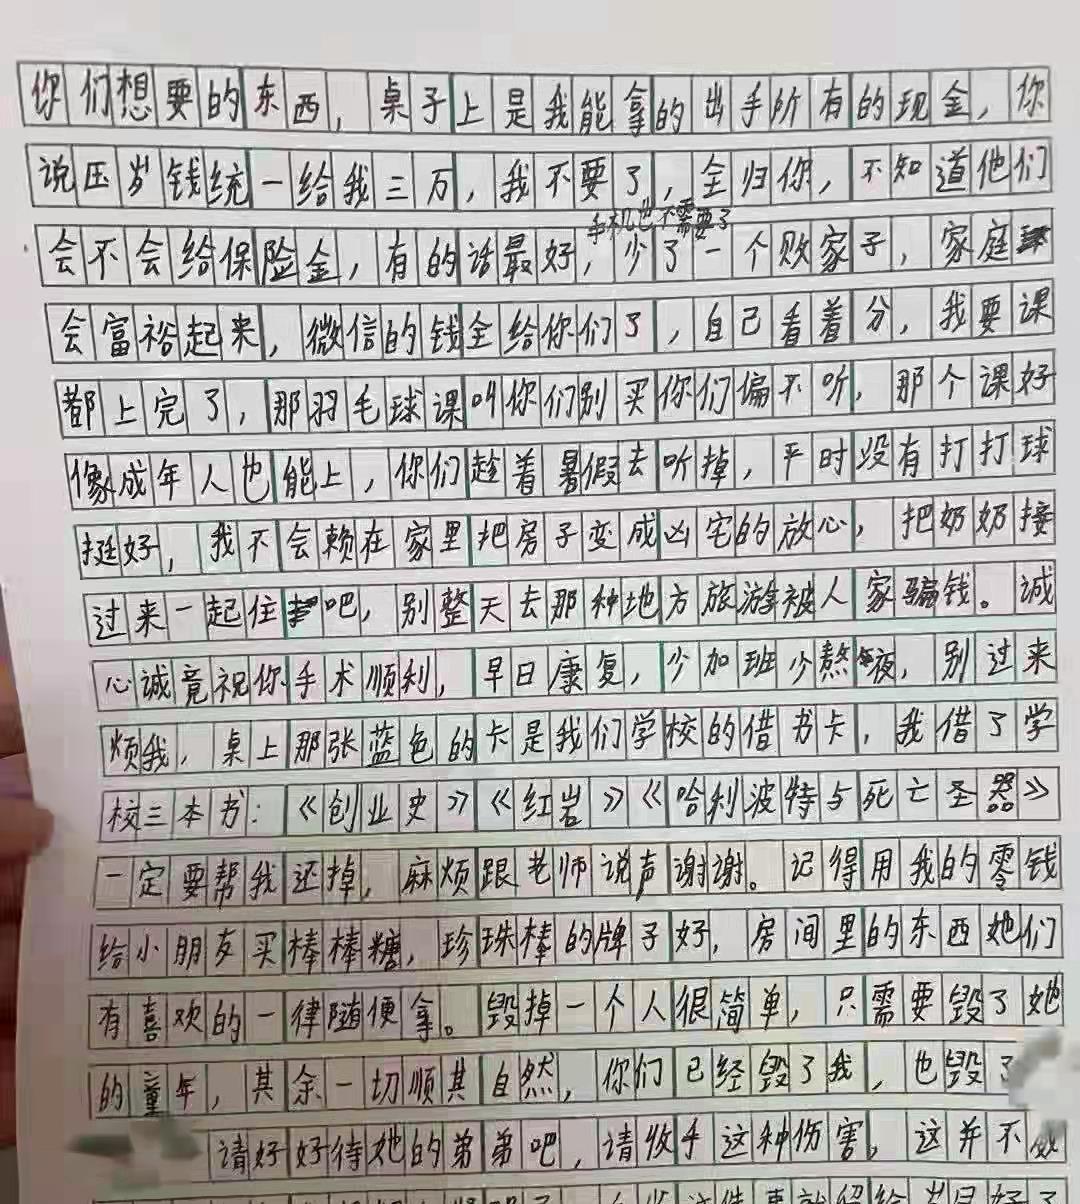 你们想要的东西，桌子上是我能拿的出手所有的现金，你
说压岁钱统一给我三万，我不要了，全归你，不知道他们
手机也不需要了
会不会给保险金，有的话最好，少了一个败家子，家庭
会富裕起来，微信的钱全给你们了，自己看着分，我要课
都上完了，那羽毛球课叫你们别买你们偏不听，那个课好
像成年人也能上，你们趁着暑假去听掉，平时没有打打球
挺好，我不会赖在家里把房子变成凶宅的放心，把奶奶接
过来一起住吧，别整天去那种地方旅游被人家骗钱。诚
心诚竟祝你手术顺利，早日康复，少加班少熬夜，别过来
烦我，桌上那张蓝色的卡是我们学校的借书卡，我借了学
校三本书：《创业史》《红岩》《哈利波特与死亡圣器》
一定要帮我还掉，麻烦跟老师说声谢谢。记得用我的零钱
给小朋友买棒棒糖，珍珠棒的牌子好，房间里的东西她们
有喜欢的一律随便拿。毁掉一个人很简单，只需要毁了她
的童年，其余一切顺其自然，你们已经毁了我，也毁了
请好好待她的弟弟吧，请收手这种伤害，这并不